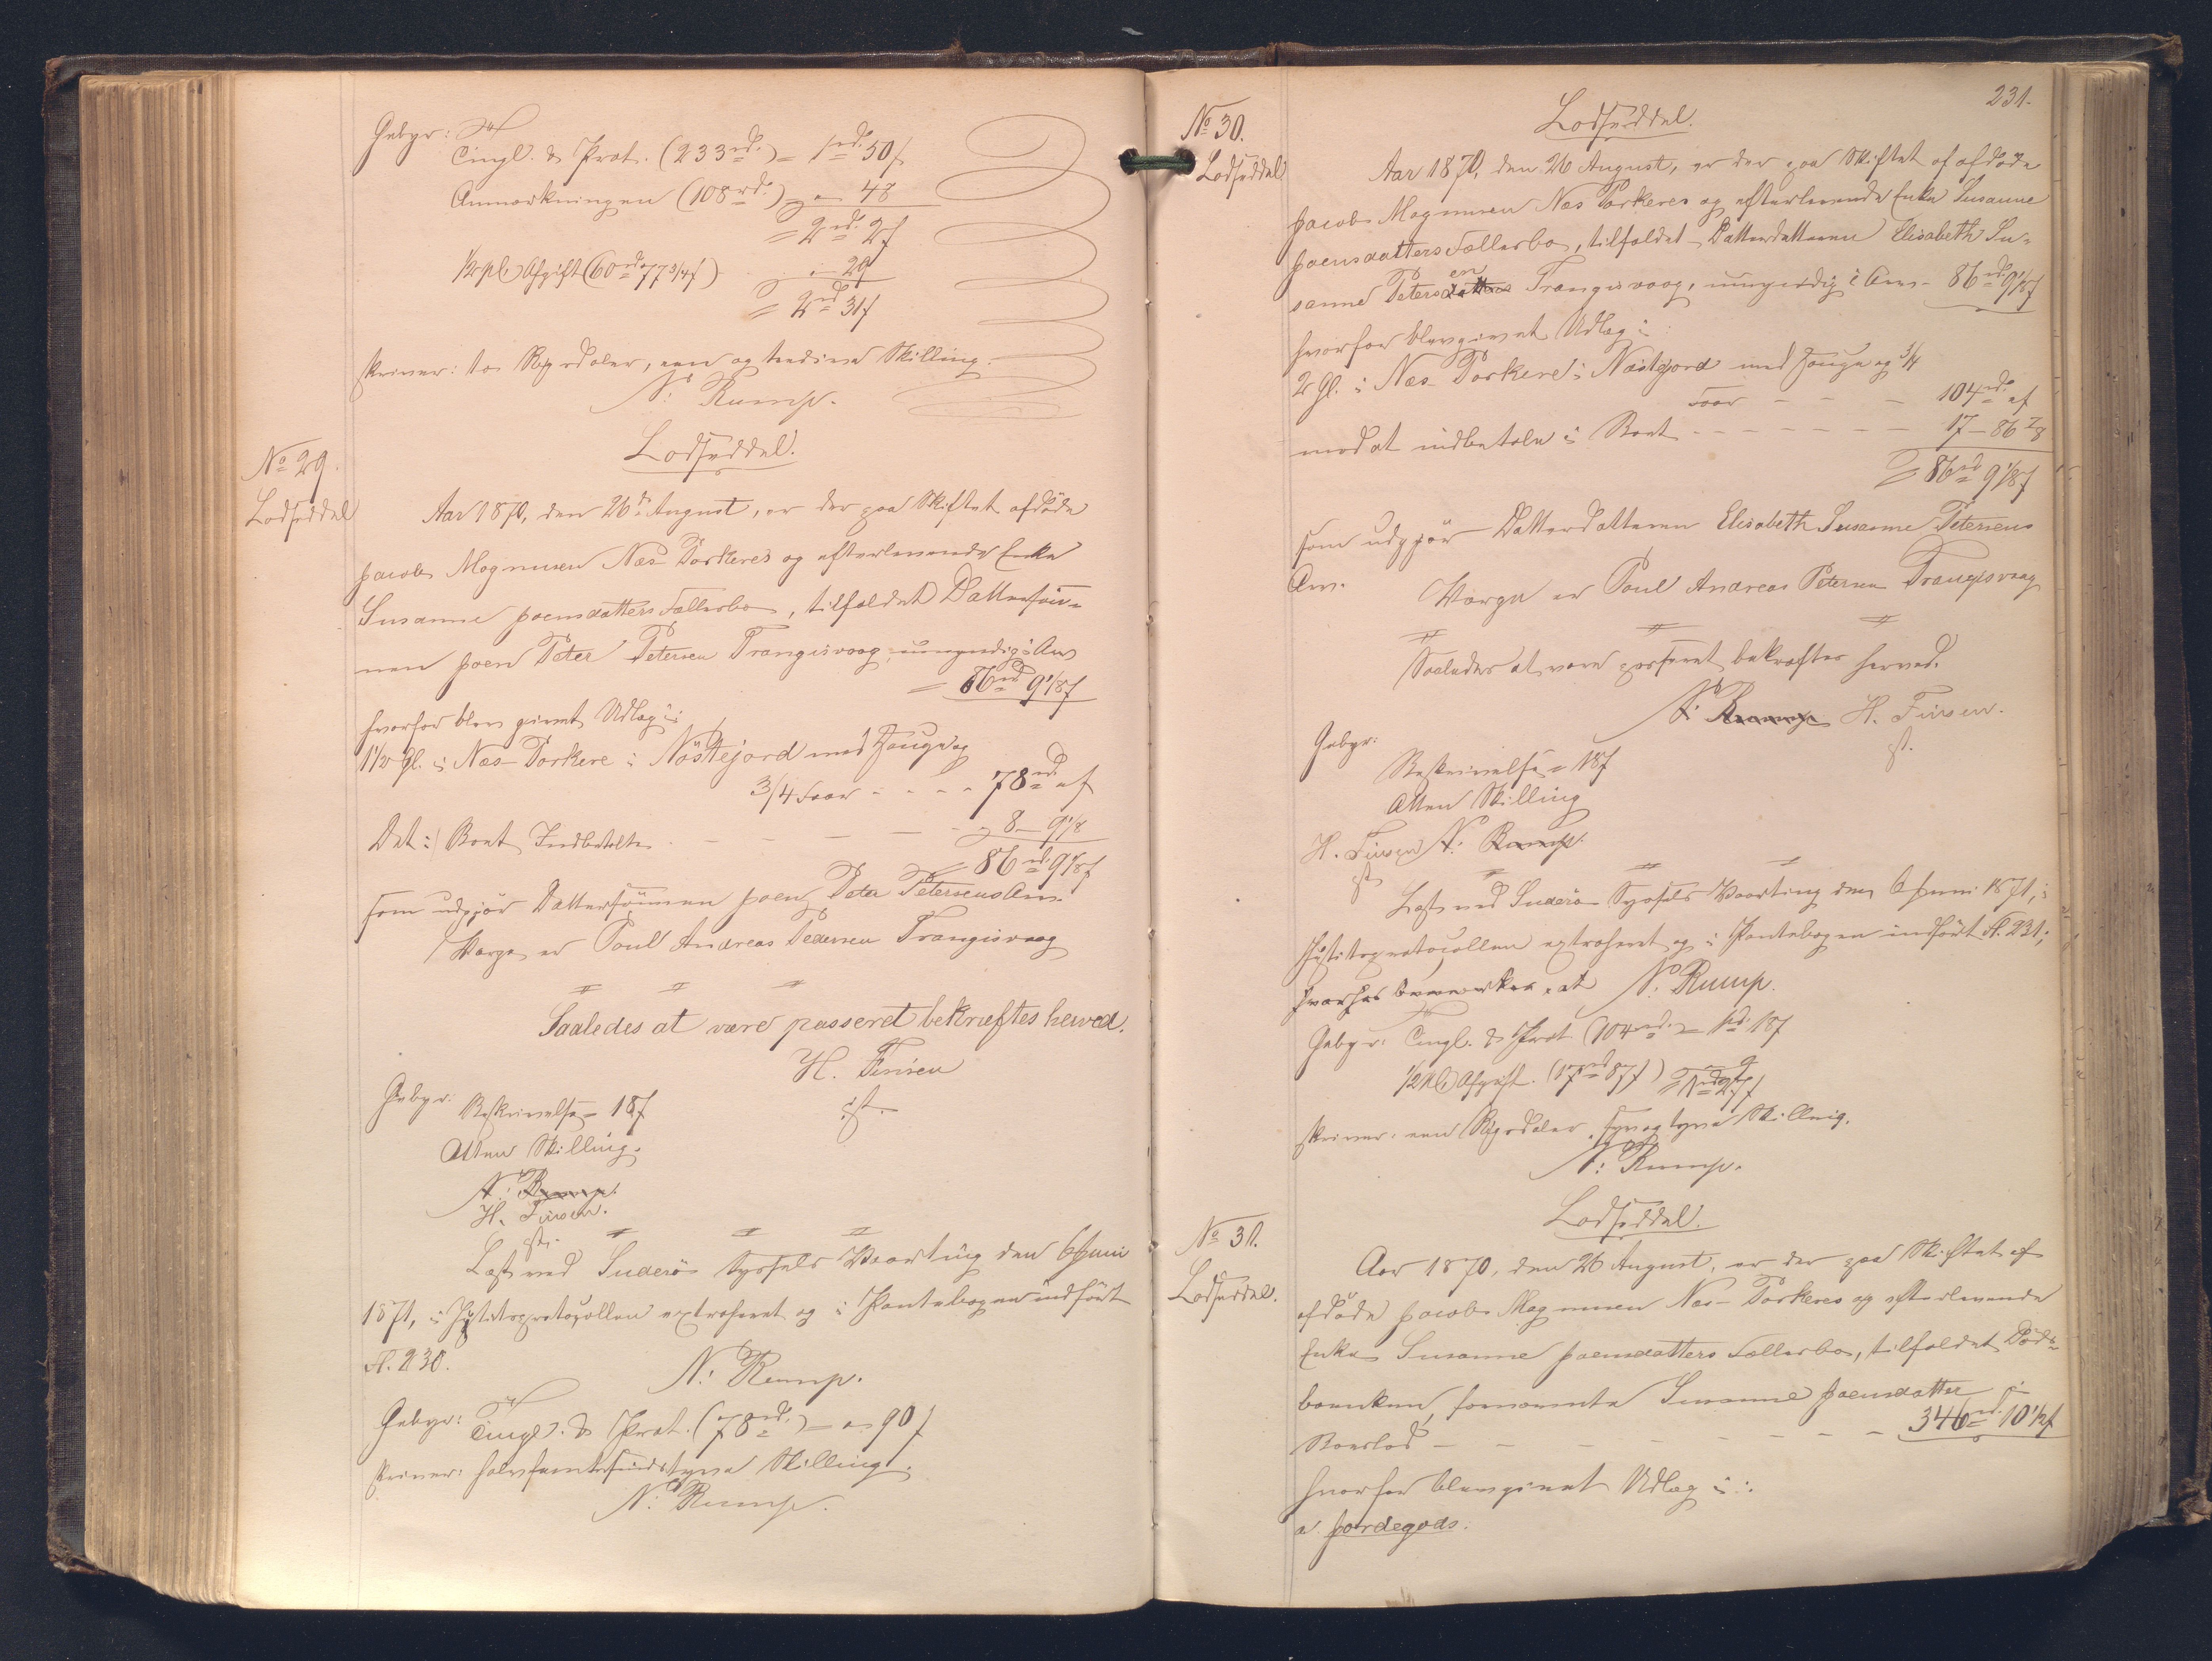 Gebyr:
Tingl. & Prot. (233rd.) = 1rd. 50 ß
Anmærkningen (108rd.) = " 48
= 2rd. 2 ß
1/2 pCt Afgift (60rd 77 3/4 ß) " 29
= 2rd 31 ß
skriver: to Rigsdaler, een og tredive Skilling.
N: Rump.
No 29.
Lodseddel
Lodseddel.
Aar 1870, den 26de August, er der paa Skiftet afdöde
Jacob Magnusen Næs Porkeres og efterlevende Enke
Susanne Joensdatters Fællesbo, tilfaldet Dattersön-
nen Joen Peter Petersen Trangisvaag, umyndig: Arv
= 86rd 9 1/8 ß
hvorfor blev givet Udlæg i:
1 1/2 Gl. i Næs-Porkere i Nöstejord med Hauge og
3/4 Faar - - - - 78rd " ß
Det i Boet Indbetalte - - - - - 8 - 9 1/8
= 86rd. 9 1/8 ß
som udgjör Dattersönnen Joen Peter Petersens Arv.
Værge er Poul Andreas Pedersen Trangisvaag
Saaledes at være passeret bekræftes herved.
H. Finsen
cst.
Gebyr: Beskrivelse = 18 ß
Atten Skilling.
N: Rump.
H. Finsen.
cst.
Læst ved Suderö Syssels Vaarting den 6 Juni
1871, i Justitsprotocollen extraheret og i Pantebogen indfört
Fl. 230.
N: Rump.
Gebyr: Tingl. & Prot. (78rd.) = " 90 ß
skriver: halvfemtesindstyve Skilling.
N: Rump.
231.
No 30.
Lodseddel
Lodseddel.
Aar 1870, den 26 August, er der paa Skiftet af afdöde
Jacob Magnusen Næs Porkeres og efterlevende Enke Susanne
Joensdatters Fællesbo, tilfaldet Datterdatteren Elisabeth Su-
sanne Petersen Trangisvaag, umyndig: Arv - 86rd. 9 1/8 ß
hvorfor blev givet Udlæg i:
2 Gl. i Næs-Porkere i Nöstejord med Hauge og 3/4
Faar - - - 104rd. " ß
mod at indbetale i Boet - - - - - - - 17 - 86 7/8
= 86rd 9 1/8 ß
som udgjör Datterdatteren Elisabeth Susanne Petersens
Arv.
Værge er Poul Andreas Petersen Trangisvaag
Saaledes at være passeret bekræftes herved.
N: Rump H. Finsen.
cst.
Gebyr:
Beskrivelse = 18 ß
Atten Skilling
H. Finsen N: Rump.
cst
Læst ved Suderö Syssels Vaarting den 6 Juni 1871, i
Justitsprotocollen extraheret og i Pantebogen indfört Fl. 231;
hvorhos bemærkes, at N: Rump.
Gebyr: Tingl. & Prot (104rd.) = 1rd. 18 ß
1/2 pCt Afgift. (17rd 87 ß) " 9
= 1rd 27 ß
skriver: een Rigsdaler, syv og tyve Skilling.
N: Rump.
No 31.
Lodseddel.
Lodseddel.
Aar 1870, den 26 August, er der paa Skiftet af
afdöde Jacob Magnusen Næs-Porkeres og efterlevende
Enke Susanne Joensdatters Fællesbo, tilfaldet Döds-
boenken, fornævnte Susanne Joensdatter i
Boeslod - - - - - - - - 346rd. 10 1/2 ß
hvorfor blev givet Udlæg i:
a Jordegods: